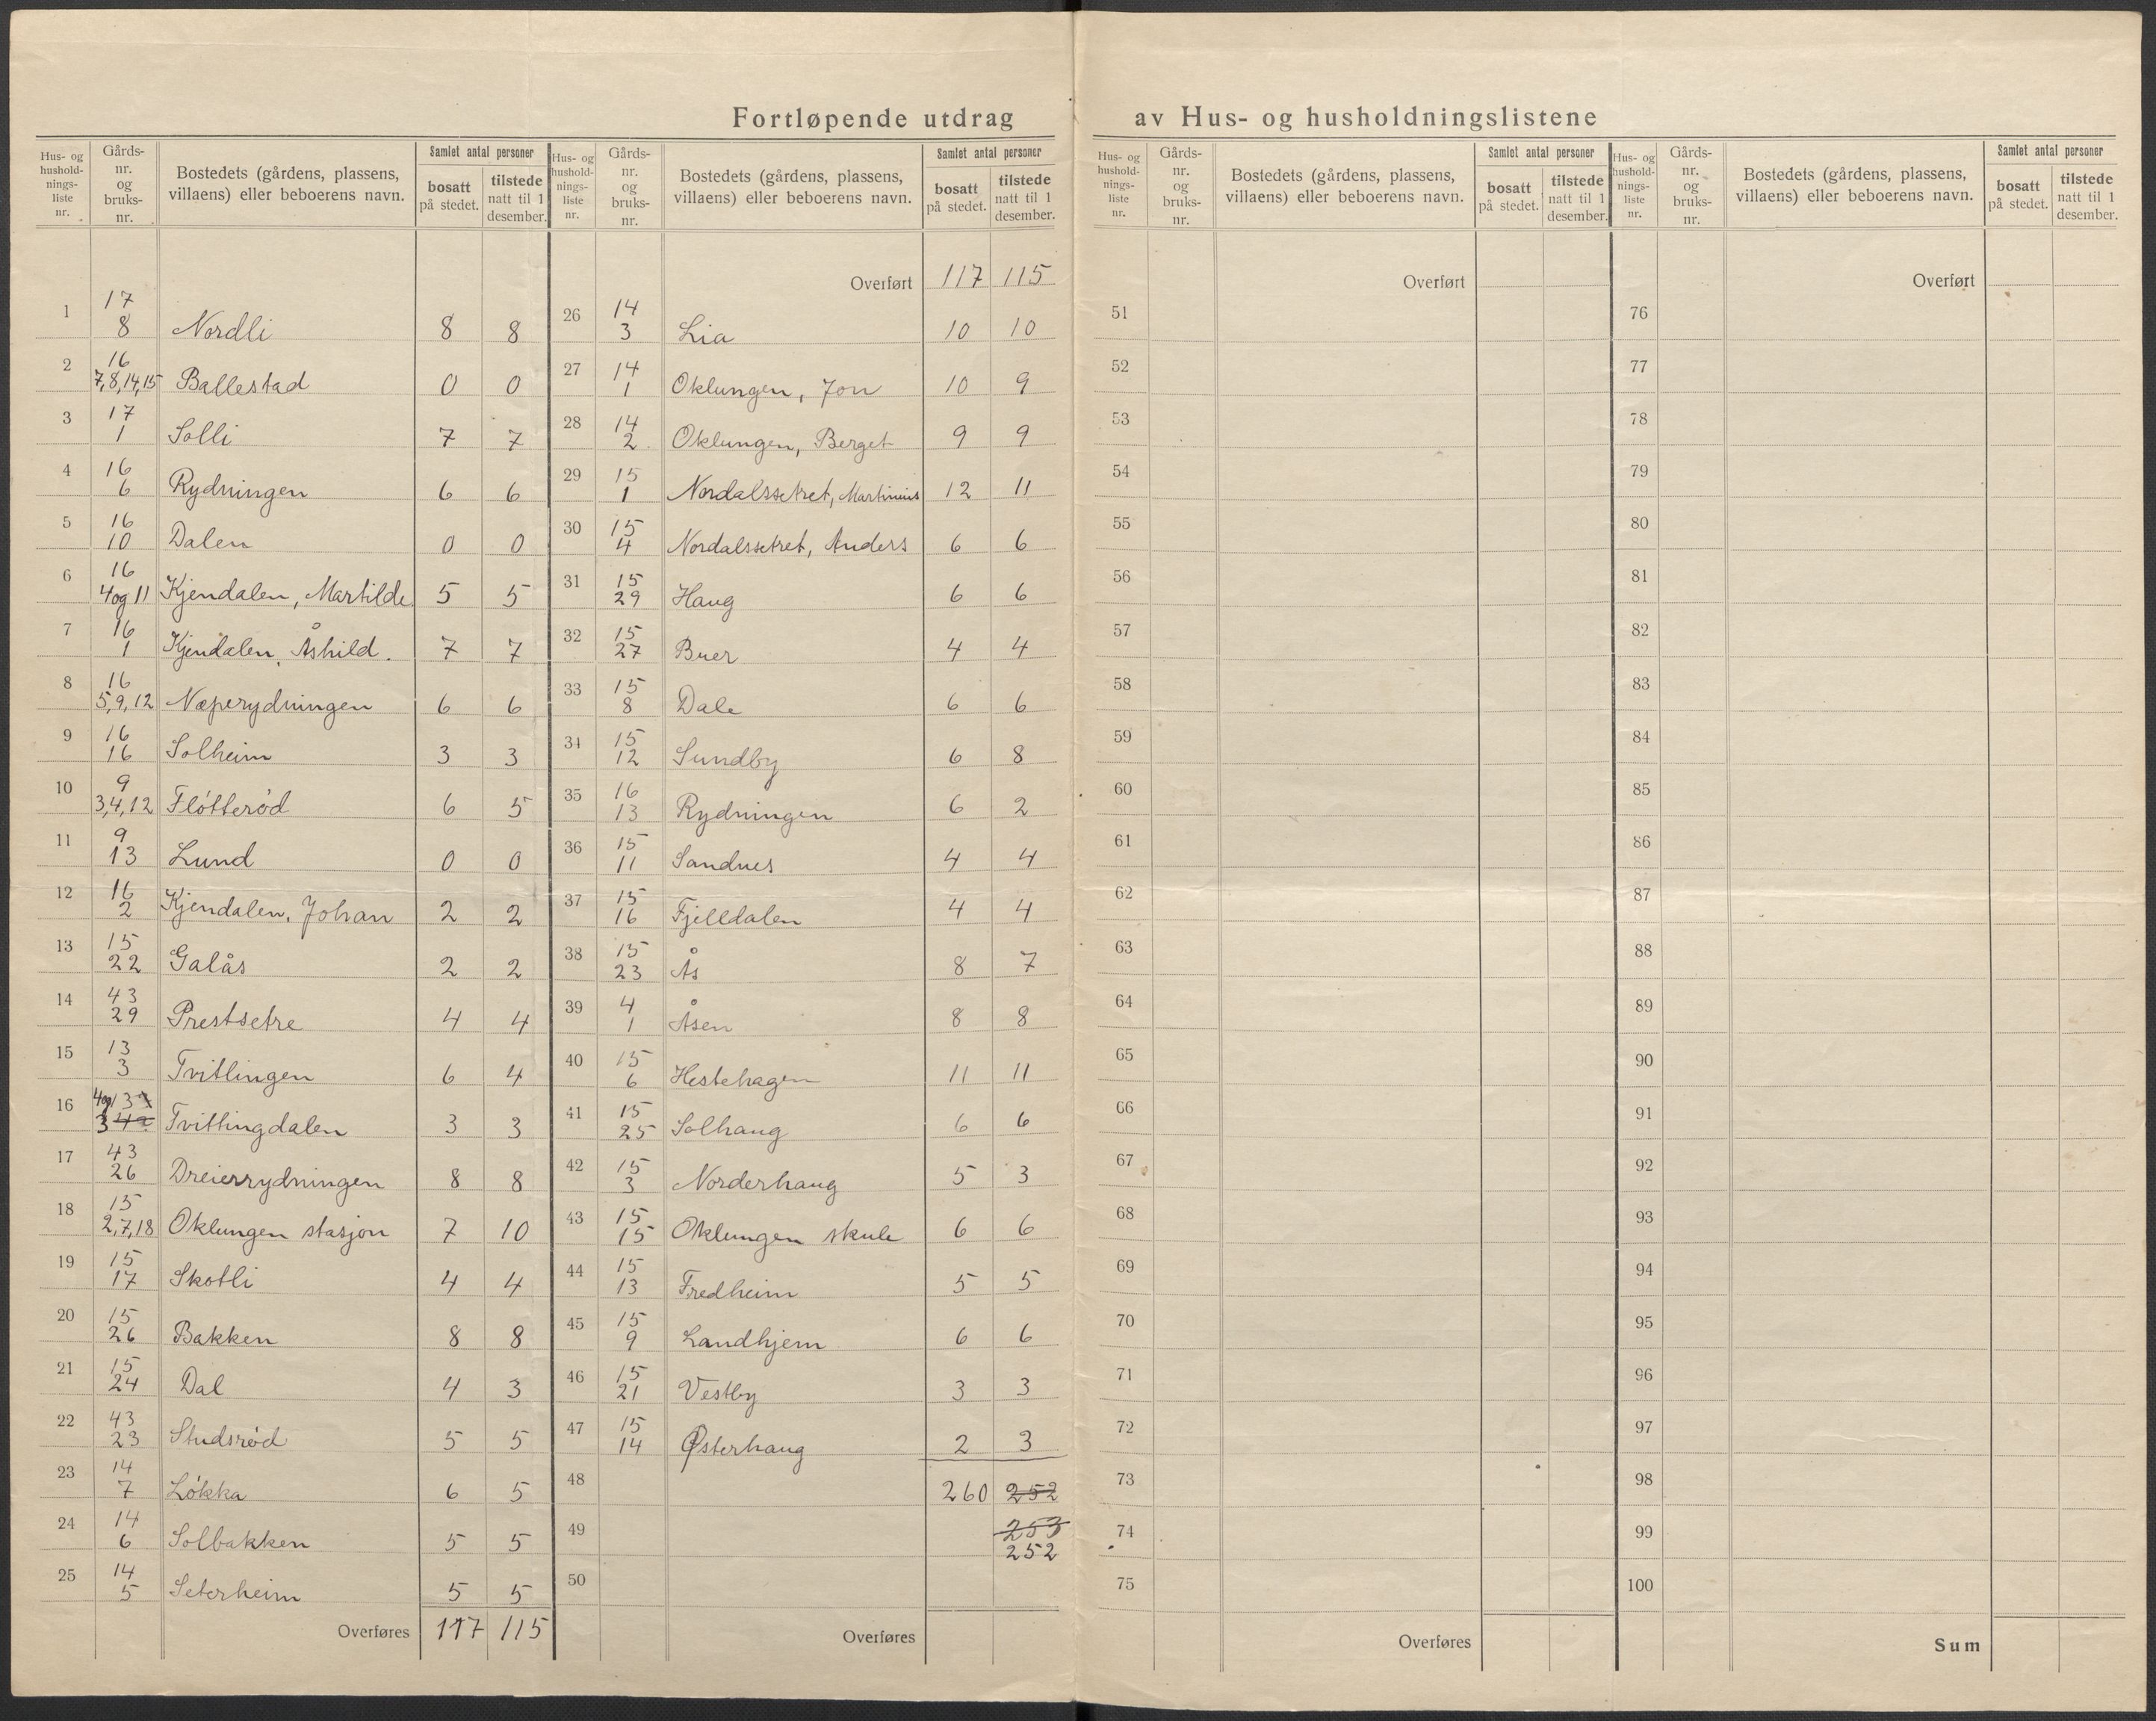 Fortløpende utdrag av Hus- og husholdningslistene
Hus- og husholdnings-liste nr. | Gårds-nr. og bruks-nr. | Bostedets (gårdens, plassens, villaens) eller beboerens navn. | Samlet antal personer | bosatt på stedet. | tilstede natt til 1 desember.
1 | 17 / 8 | Nordli | 8 | 8
2 | 16 / 7,8,14,15 | Ballestad | 0 | 0
3 | 17 / 1 | Solli | 7 | 7
4 | 16 / 6 | Rydningen | 6 | 6
5 | 16 / 10 | Dalen | 0 | 0
6 | 16 / 4 og 11 | Kjendalen, Martilde | 5 | 5
7 | 16 / 1 | Kjendalen, Åshild. | 7 | 7
8 | 16 / 5,9,12 | Næperydningen | 6 | 6
9 | 16 / 16 | Solheim | 3 | 3
10 | 9 / 3,4,12 | Fløtterød | 6 | 5
11 | 9 / 13 | Lund | 0 | 0
12 | 16 / 2 | Kjendalen, Johan | 2 | 2
13 | 15 / 22 | Galås | 2 | 2
14 | 43 / 29 | Prestsetre | 4 | 4
15 | 13 / 3 | Tvitlingen | 6 | 4
16 | Tvitlingdalen | 3 | 3
17 | 43 / 26 | Dreierrydningen | 8 | 8
18 | 15 / 2,7,18 | Oklungen stasjon | 7 | 10
19 | 15 / 17 | Skotli | 4 | 4
20 | 15 / 26 | Bakken | 8 | 8
21 | 15 / 24 | Dal | 4 | 3
22 | 43 / 23 | Studsrød | 5 | 5
23 | 14 / 7 | Løkka | 6 | 5
24 | 14 / 6 | Solbakken | 5 | 5
25 | 14 / 5 | Seterheim | 5 | 5
Overføres | 117 | 115
Hus- og husholdnings-liste nr. | Gårds-nr. og bruks-nr. | Bostedets (gårdens, plassens, villaens) eller beboerens navn. | Samlet antal personer | bosatt på stedet. | tilstede natt til 1 desember.
Overført | 117 | 115
26 | 14 / 3 | Lia | 10 | 10
27 | 14 / 1 | Oklungen, Jon | 10 | 9
28 | 14 / 2 | Oklungen, Berget | 9 | 9
29 | 15 / 1 | Nordalssetret, Martinius | 12 | 11
30 | 15 / 4 | Nordalssetret, Anders | 6 | 6
31 | 15 / 29 | Haug | 6 | 6
32 | 15 / 27 | Buer | 4 | 4
33 | 15 / 8 | Dale | 6 | 6
34 | 15 / 12 | Sundby | 6 | 8
35 | 16 / 13 | Rydningen | 6 | 2
36 | 15 / 11 | Sandnes | 4 | 4
37 | 15 / 16 | Fjelldalen | 4 | 4
38 | 15 / 23 | Ås | 8 | 7
39 | 4 / 1 | Åsen | 8 | 8
40 | 15 / 6 | Hestehagen | 11 | 11
41 | 15 / 25 | Solhaug | 6 | 6
42 | 15 / 3 | Norderhaug | 5 | 3
43 | 15 / 15 | Oklungen skule | 6 | 6
44 | 15 / 13 | Fredheim | 5 | 5
45 | 15 / 9 | Landhjem | 6 | 6
46 | 15 / 21 | Vestby | 3 | 3
47 | 15 / 14 | Østerhaug | 2 | 3
48 | 260 | 252
49 | 253
252
50
Overføres
Hus- og husholdnings-liste nr. | Gårds-nr. og bruks-nr. | Bostedets (gårdens, plassens, villaens) eller beboerens navn. | Samlet antal personer | bosatt på stedet. | tilstede natt til 1 desember.
Overført
51
52
53
54
55
56
57
58
59
60
61
62
63
64
65
66
67
68
69
70
71
72
73
74
75
Overføres
Hus- og husholdnings-liste nr. | Gårds-nr. og bruks-nr. | Bostedets (gårdens, plassens, villaens) eller beboerens navn. | Samlet antal personer | bosatt på stedet. | tilstede natt til 1 desember.
Overført
76
77
78
79
80
81
82
83
84
85
86
87
88
89
90
91
92
93
94
95
96
97
98
99
100
Sum